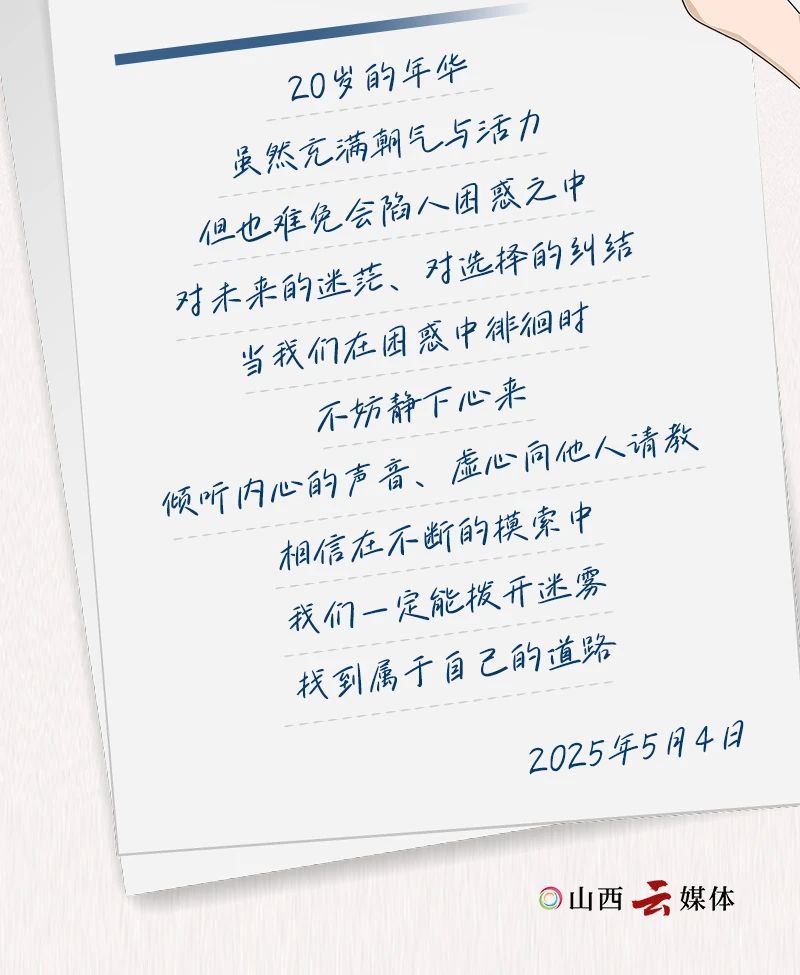 20岁的年华
虽然充满朝气与活力
但也难免会陷入困惑之中
对未来的迷茫、对选择的纠结
当我们在困惑中徘徊时
不妨静下心来
倾听内心的声音、虚心向他人请教
相信在不断的摸索中
我们一定能拨开迷雾
找到属于自己的道路
2025年5月4日
山西云媒体